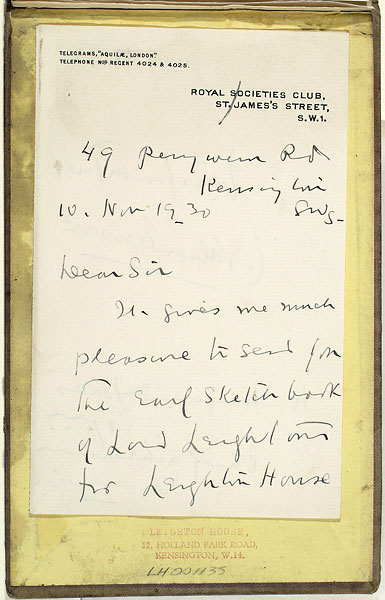 TELEGRAMS, "AQUILÆ, LONDON."
TELEPHONE NOS REGENT 4024 & 4025.
ROYAL SOCIETIES CLUB,
ST. JAMES'S STREET,
S.W.1.
49 Penywern Rd
Kensington
10. Nov 1930 SW5
Dear Sir
It gives me much
pleasure to send you
the Early Sketch book
of Lord Leighton's
for Leighton House
LEIGHTON HOUSE,
12, HOLLAND PARK ROAD,
KENSINGTON, W.14.
LH001135